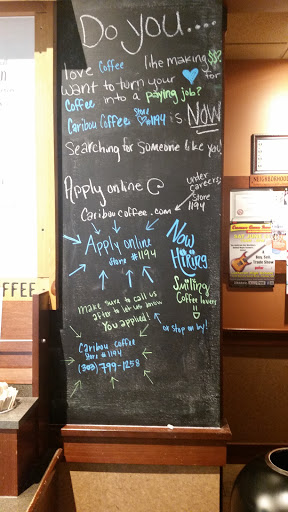 Do you....
love Coffee like making $$?
Want to turn your ♡ for
Coffee into a paying job?
Caribou Coffee Store #1194 is NOW
Searching for someone like you!
Apply online @
Cariboucoffee.com
under careers,
Store
1194
Apply online
Store #1194
Now
Hiring
Smiling
Coffee lovers
!!
make sure to call us
after to let us know
You applied!
or stop on by!
Caribou Coffee
Store #1194
(303) 799-1258
OFFEE
NEIGHBORHOOD